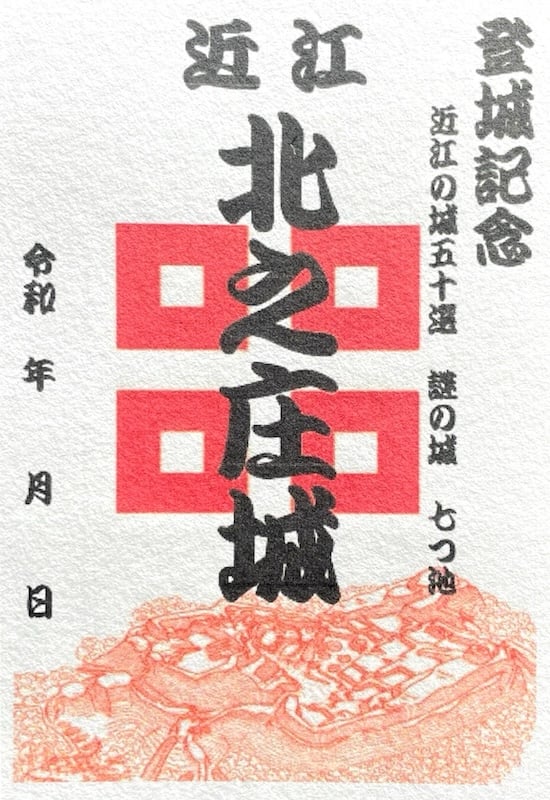 登城記念
近江の城五十選 謎の城 七つ池
近江
北之庄城
令和 年 月 日